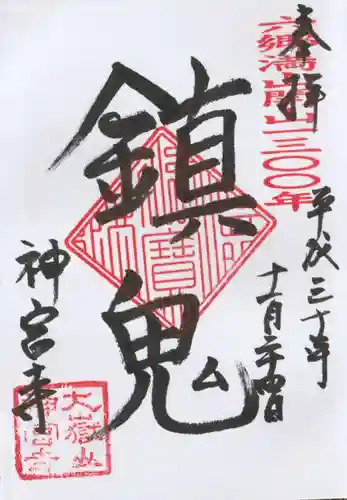 奉拝
六郷満山開山一三〇〇年
平成三十年
十一月二十四日
鎮鬼
神宮寺
大嶽山
神宮寺